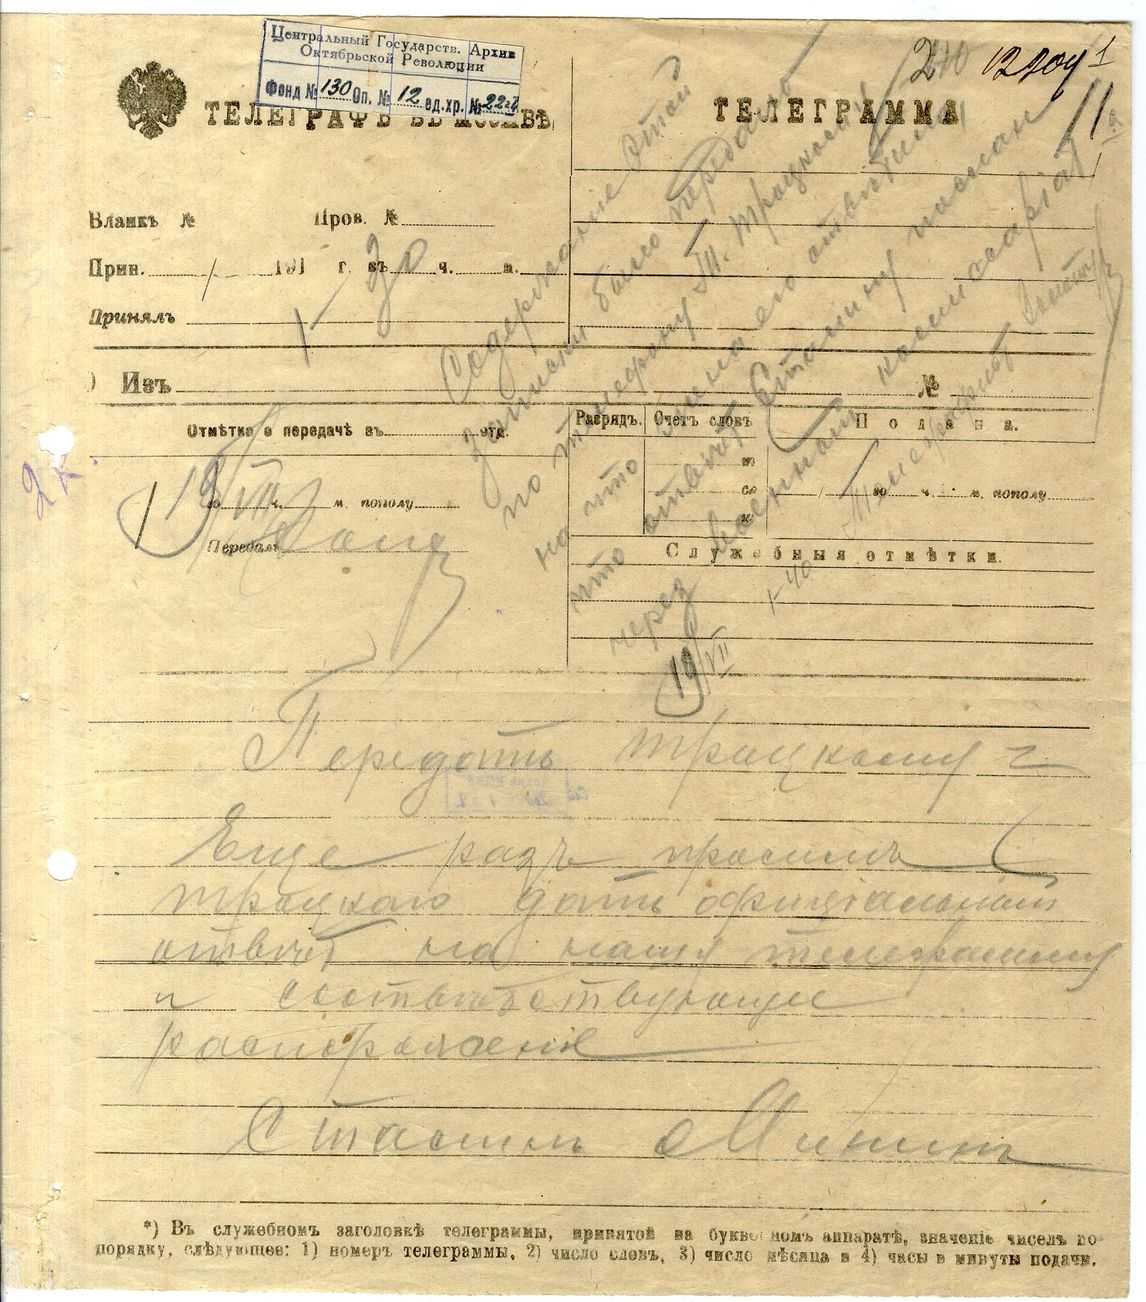 Центральный Государств. Архив
Октябрьской Революции
Фонд № 130 Оп. № 12 ед. хр. №
240
11
ТЕЛЕГРАФЪ ВЪ МОСКВѢ
ТЕЛЕГРАММА
Бланкъ № Пров. №
Прин. 191 г. въ ч. м.
1 30
Принялъ
Изъ №
Отмѣтка о передачѣ въ отд.
Разрядъ. Счетъ словъ Подана.
19/VII
го ч. м. пополу
го ч. м. пополу
Передалъ
Служебныя отмѣтки.
Содержаніе этой
записки было передано
по телефону т. Троцкому
на что мнѣ его отвѣт было
что отвѣт Сталину послан
через военный комиссаріат
1-40
19/VII
Передать Троцкому
Еще разъ просимъ
Троцкого дать офиціальный
отвѣт на нашу телеграмму
и соотвѣтствующие
распоряжения
Сталин Минин
*) Въ служебномъ заголовкѣ телеграммы, принятой на буквенномъ аппаратѣ, значеніе чиселъ по
порядку, слѣдующее: 1) номеръ телеграммы, 2) число словъ, 3) число мѣсяца и 4) часы и минуты подачи.